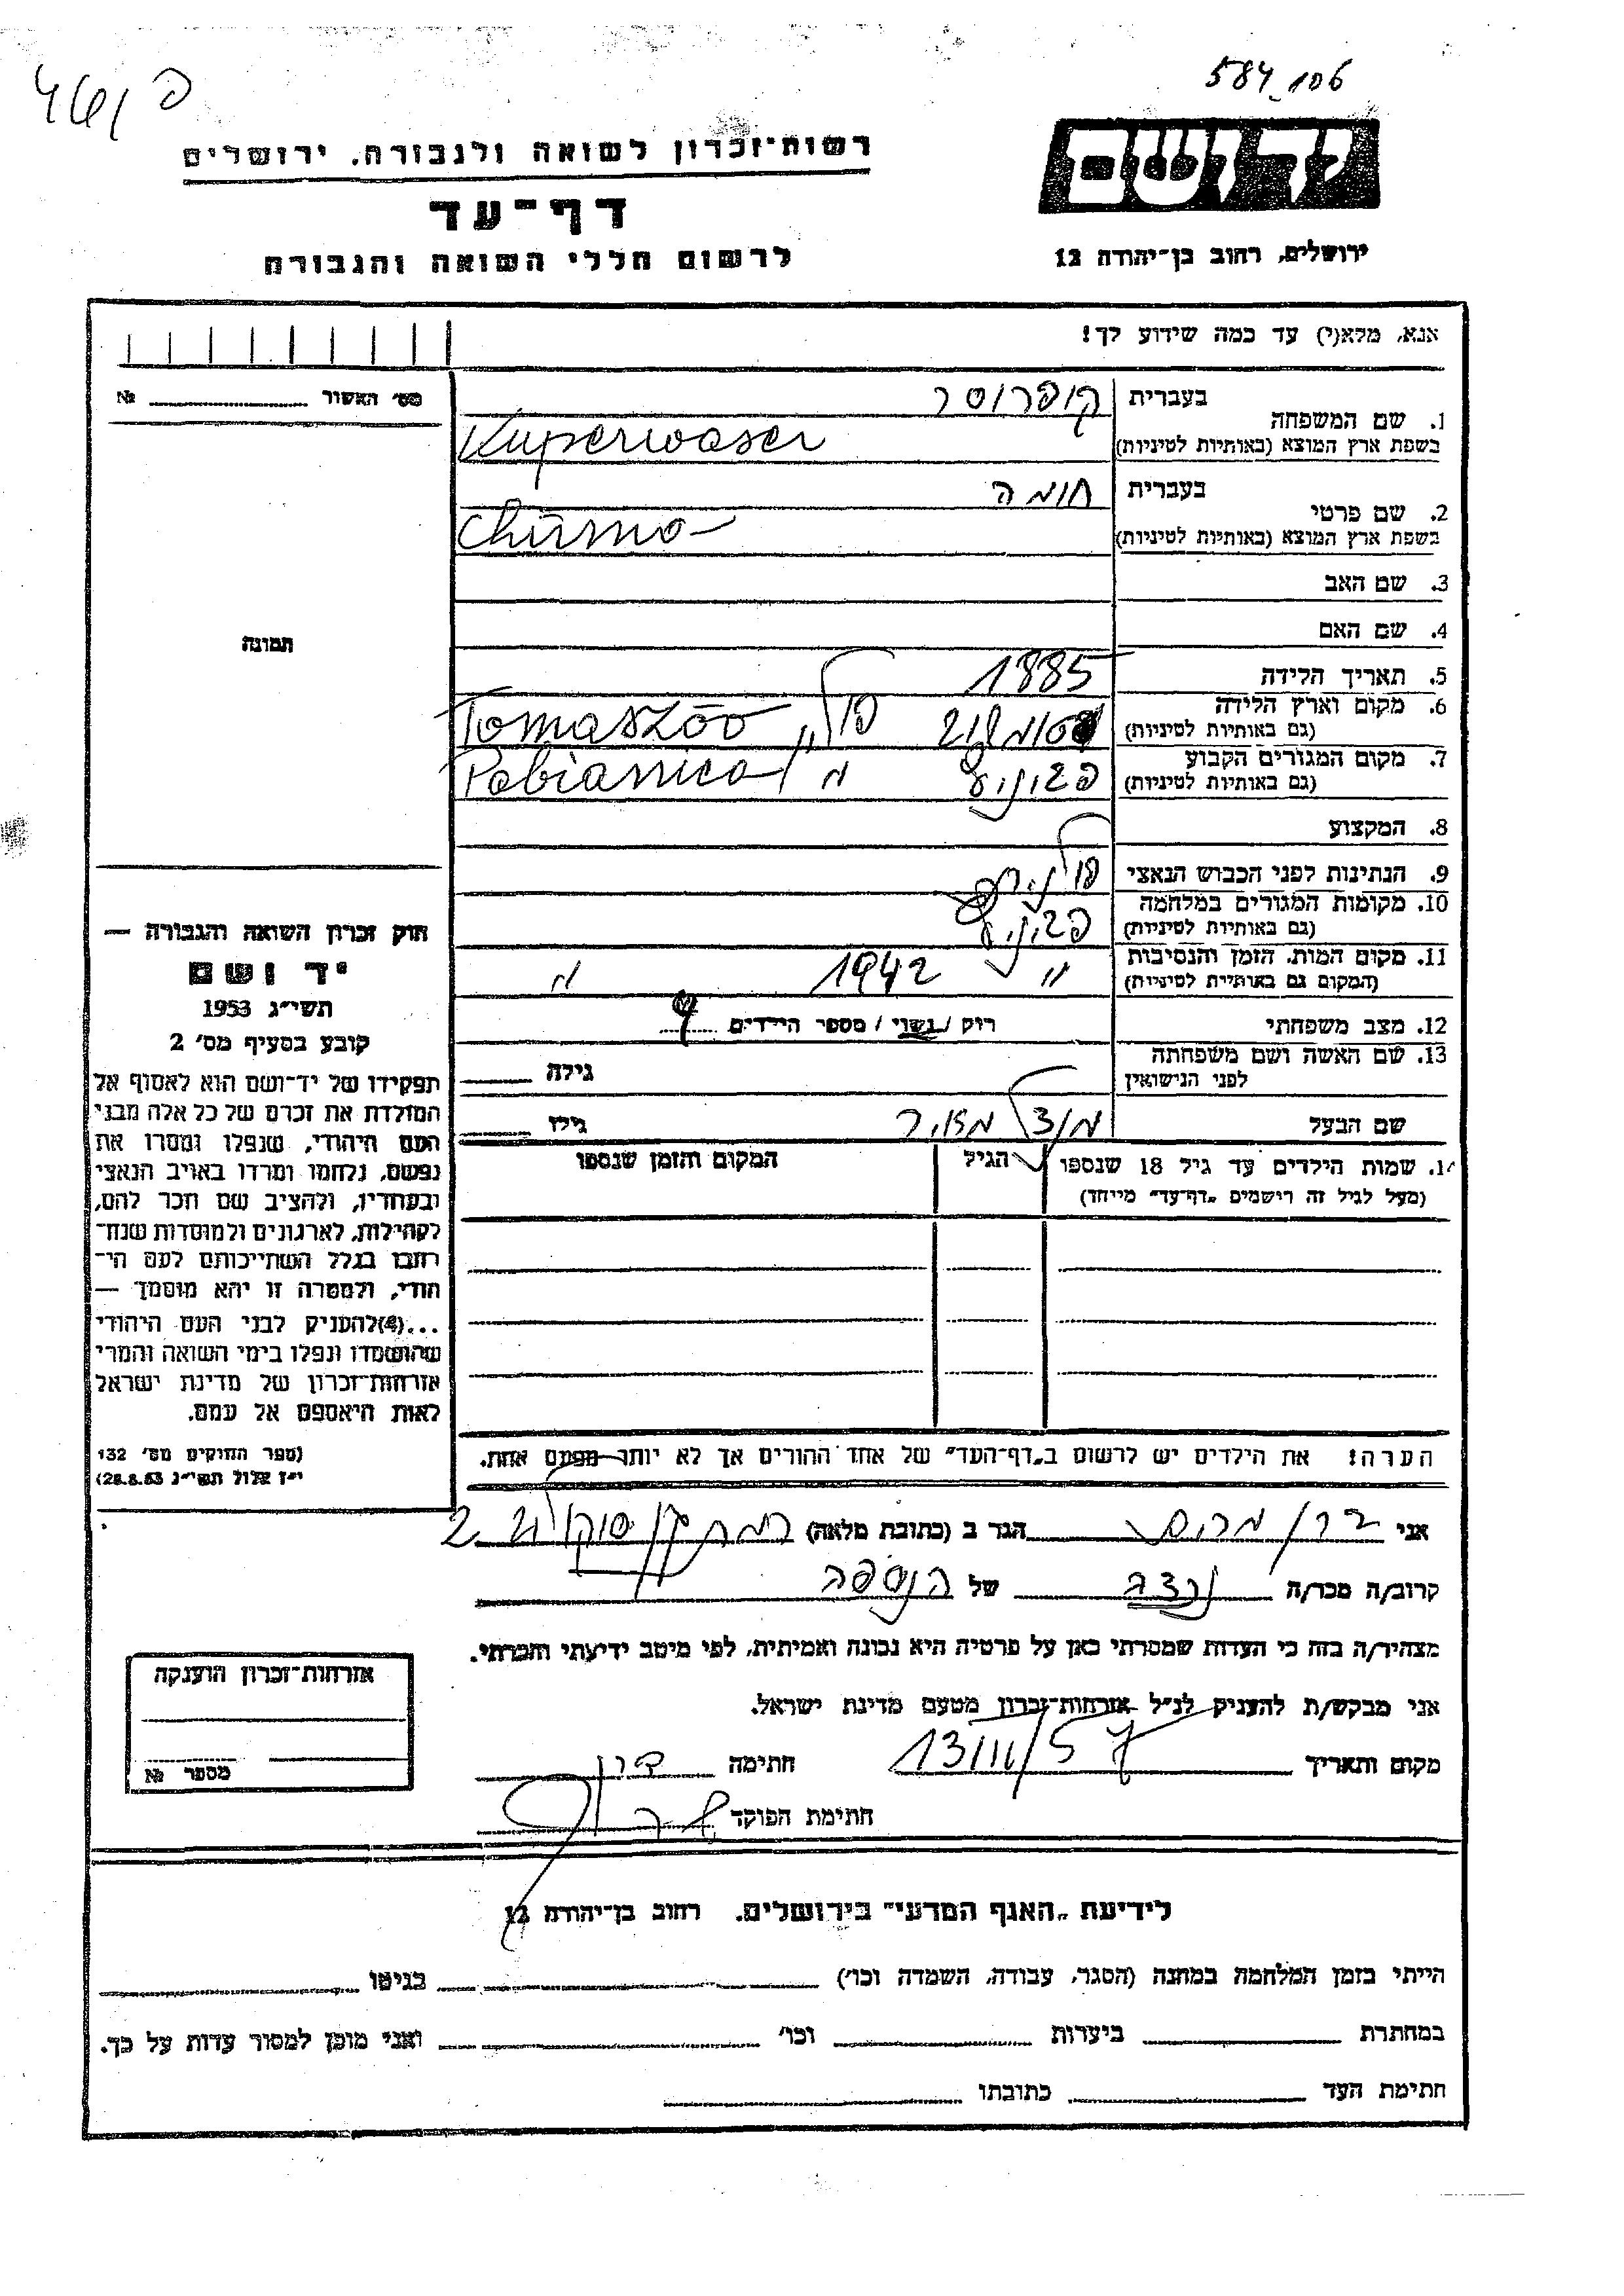 584_106
רשות־זכרון לשואה ולגבורה, ירושלים
יד ושם
דף־עד
לרשום חללי השואה והגבורה
ירושלים, רחוב בן־יהודה 12
אנא, מלא(י) עד כמה שידוע לך!
מס׳ האשור № 
1. שם המשפחה בעברית קופרוסר
בשפת ארץ המוצא (באותיות לטיניות) Kuperwaser
2. שם פרטי בעברית חומה
בשפת ארץ המוצא (באותיות לטיניות) Churmo
3. שם האב
4. שם האם
תמונה
5. תאריך הלידה 1885
6. מקום וארץ הלידה
(גם באותיות לטיניות) פול׳ Tomaszóo
7. מקום המגורים הקבוע
(גם באותיות לטיניות) פביניץ " Pabianica
8. המקצוע
9. הנתינות לפני הכבוש הנאצי פולנית
10. מקומות המגורים במלחמה
(גם באותיות לטיניות) פביניץ
11. מקום המות, הזמן והנסיבות
(המקום גם באותיות לטיניות) " 1942 "
12. מצב משפחתי רווק / נשוי / מספר הילדים
13. שם האשה ושם משפחתה
לפני הנישואין גילה
שם הבעל מנדל מאיר גילו
14. שמות הילדים עד גיל 18 שנספו הגיל המקום והזמן שנספו
(מעל לגיל זה רישמים „דף־עד״ מייחד)
חוק זכרון השואה והגבורה —
יד ושם
תשי״ג 1953
קובע בסעיף מס׳ 2
תפקידו של יד־ושם הוא לאסוף אל
המולדת את זכרם של כל אלה מבני
העם היהודי, שנפלו ומסרו את
נפשם, נלחמו ומרדו באויב הנאצי
ובעוזריו, ולהציב שם וזכר להם,
לקהילות, לארגונים ולמוסדות שנח־
רבו בגלל השתייכותם לעם הי־
הודי, ולמטרה זו יהא מוסמך —
...(4)להעניק לבני העם היהודי
שהושמדו ונפלו בימי השואה והמרי
אזרחות־זכרון של מדינת ישראל
לאות היאספם אל עמם.
(ספר החוקים מס׳ 132
י״ז אלול תשי״ג 28.8.53)
הערה! את הילדים יש לרשום ב„דף־העד״ של אחד ההורים אך לא יותר מפעם אחת.
אני דרן מרים הגר ב (כתובת מלאה) רמת גן סוקולוב 2
קרוב/ה מכר/ה נכדה של הנספה
מצהיר/ה בזה כי העדות שמסרתי כאן על פרטיה היא נכונה ואמיתית, לפי מיטב ידיעתי והכרתי.
אני מבקש/ת להעניק לנ״ל אזרחות־זכרון מטעם מדינת ישראל.
מקום ותאריך 13/III/57 חתימה דרן
חתימת הפוקד
אזרחות־זכרון הוענקה
מספר №
לידיעת „האגף המדעי״ בירושלים. רחוב בן־יהודה 12
הייתי בזמן המלחמה במחנה (הסגר, עבודה, השמדה וכו׳) בגיטו
במחתרת ביערות וכו׳ ואני מוכן למסור עדות על כך.
חתימת העד כתובתו